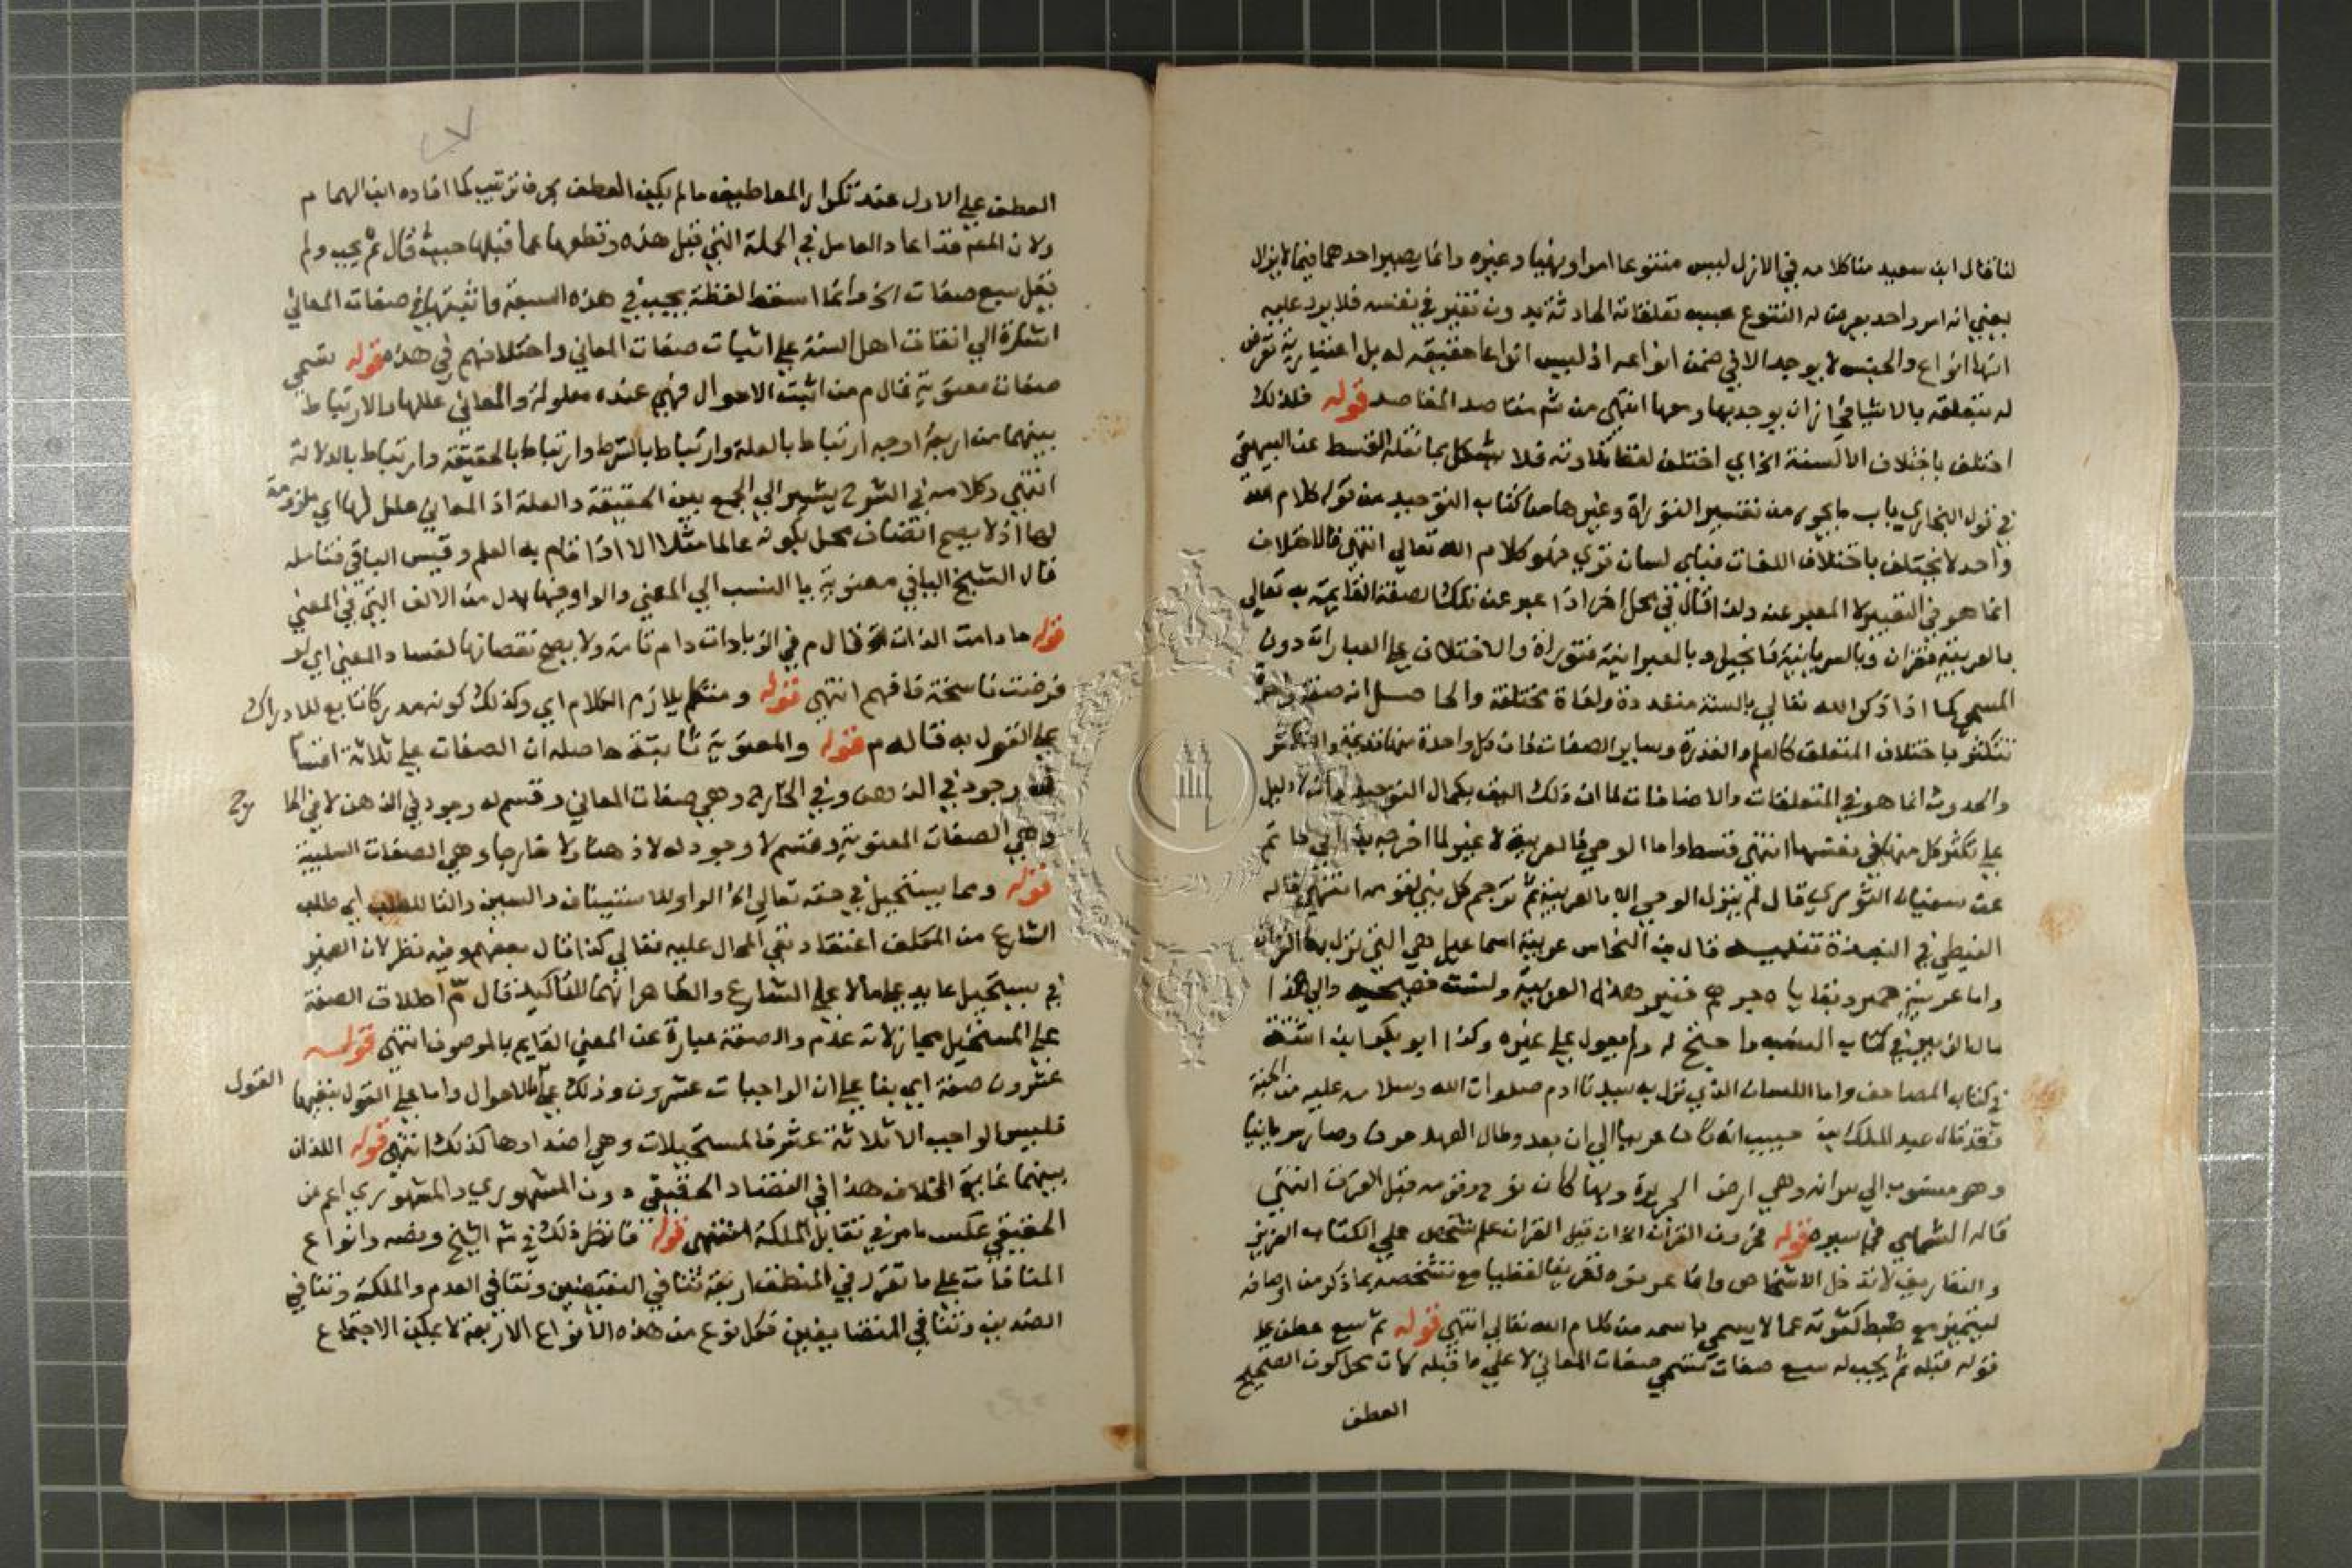 لنا فقال ابن سعيد منا كلامه في الازل ليس متنوعا امرا ونهيا وغيره وانما يصير احدهما فيما لا يزال
يعني انه امر واحد يعرض له التنوع بحسب تعلقاته الحادثة بدون تغير في نفسه فلا يرد عليه
انها انواع والجنس لا يوجد الا في ضمن انواعه اذ ليس انواعا حقيقية له بل اعتبارية تعرض
له بتعلقه بالاشيا فجاز ان يوجد بها ومعها انتهى من شم مقاصد المقاصد قوله فلذلك
اختلف باختلاف الالسنة الخ اي اختلف لفظا فلا يشكل بما نقله القسط عن البيهقي
في قول البخاري باب ما يجوز من تفسير التوراة وغيرها من كتاب التوحيد من قوله كلام الله
واحد لا يختلف باختلاف اللغات فباي لسان قري فهو كلام الله تعالى انتهى فالاختلاف
انما هو في التعبير لا المعبر عنه ولذا قال في محل اخر اذا عبر عن تلك الصفة القايمة به تعالى
بالعربية فقران وبالسريانية فانجيل وبالعبرانية فتوراة والاختلاف على العبارات دون
المسمى كما اذا ذكر الله تعالى بالسنة متعددة ولغاة مختلفة والحاصل انه صفة واحدة
تتكثر باختلاف المتعلق كالعلم والقدرة وساير الصفات فان كل واحدة منها قديمة والتكثر
والحدوث انما هو في المتعلقات والاضافات لما ان ذلك اليق بكمال التوحيد ولانه لا دليل
على تكثر كل منها في نفسها انتهى قسط واما الوحي فالعربية لا غير لما اخرجه ابن ابي حاتم
عن سفيان الثوري قال لم ينزل الوحي الا بالعربية ثم ترجم كل نبي لقومه انتهى قاله
الغيطي في النبذة تنبيه قال بن النحاس عربية اسماعيل هي التي نزل بها القران
واما عربية حمير وبقايا جرهم فغير هذه العربية وليست فصيحة والى هذا
مال الزبير في كتاب النسب واحتج له ولم يعول على غيره وكذا ابو بكر ابن اشتة
في كتاب المصاحف واما اللسان الذي نزل به سيدنا ادم صلوات الله وسلامه عليه من الجنة
فقد قال عبد الملك بن حبيب انه كان عربيا الى ان بعد وطال العهد حرف وصار سريانيا
وهو منسوب الى سورانه وهي ارض الجزيرة وبها كان نوح وقومه قبل الغرق انتهى
قاله الشامي في سيرة قوله فخرون القرآن الخ ان قيل القران علم شخص على الكتاب العزيز
والتعاريف لا تدخل الاشخاص وانما عرفوه تعريفا لفظيا مع تشخصه بما ذكر من اوصافه
ليتميز مع ضبط كثرته عما لا يسمى باسمه من كلام الله تعالى انتهى قوله ثم سبع عطف على
قوله قبله ثم يجب له سبع صفات تسمى صفات المعاني لا على ما قبله كان محل كون الصحيح
العطف
العطف على الاول عند تكرار المعاطيف ما لم يكن العطف بحرف ترتيب كما افاده ابن الهمام م
ولان المص قد اعاد العامل في الجملة التي قبل هذه وقطعها عما قبلها حيث قال ثم يجب ولم
يقل سبع صفات الخ وانما اسقط لفظة يجب في هذه السبعة واثبتها في صفات المعاني
اشارة الى اتفاق اهل السنة على اثبات صفات المعاني واختلافهم في هذه قوله تسمى
صفات معنوية قال م من اثبت الاحوال فهي عنده معلولة والمعاني عللها والارتباط
بينهما من اربعة اوجه ارتباط بالعلة وارتباط بالشرط وارتباط بالحقيقة وارتباط بالدلالة
انتهى وكلامه في الشرح يشير الى الجمع بين الحقيقة والعلة اذ المعاني علل لها اي ملزومة
لها اذ لا يصح اتصاف محل بكونه عالما مثلا الا اذا قام به العلم وقيس الباقي فتامله
قال الشيخ اليافي معنوية يا النسب الى المعنى والواو فيها بدل من الالف التي في المعنى
قوله ما دامت الذات قال م في الزيادات دام تامة ولا يصح نقصانها لفساد المعنى اي لو
فرضت ناسخة فافهم انتهى قوله ومتكلم يلازم الكلام اي وكذلك كونه مدركا تابع للادراك
على القول به قاله م قوله والمعنوية ثابتة حاصله ان الصفات على ثلاثة اقسام
له وجود في الذهن وفي الخارج وهي صفات المعاني وقسم له وجود في الذهن لا في الخا
رج
وهي الصفات المعنوية وقسم لا وجود له لا ذهنا ولا خارجا وهي الصفات السلبية
قوله ومما يستحيل في حقه تعالى الخ الواو للاستيناف والسين والتا للطلب اي طلب
الشارع من المكلف اعتقاد نفي المحال عليه تعالى كذا قال بعضهم وفيه نظر لان الضمير
في يستحيل عايد على ما لا على الشارع والظاهر انهما للتاكيد قال م اطلاق الصفة
على المستحيل مجاز لانه عدم والصفة عبارة عن المعنى القايم بالموصوف انتهى قوله
عشرون صفة اي بنا على ان الواجبات عشرون وذلك على الاحوال واما على القول بنفيها
القول
فليس الواجب الا ثلاثة عشر فالمستحيلات وهي اضدادها كذلك انتهى قوله اللذان
بينهما غاية الخلاف هذا في التضاد الحقيقي دون المشهوري والمشهوري اعم من
الحقيقي عكس ما مر في تقابل الملكة انتهى قوله فانظر ذلك في شم الشيخ ونصه وانواع
المنافات على ما تقرر في المنطق اربعة تنافي النقيضين وتنافي العدم والملكة وتنافي
الضدين وتنافي المتضايفين فكل نوع من هذه الانواع الاربعة لا يمكن الاجتماع